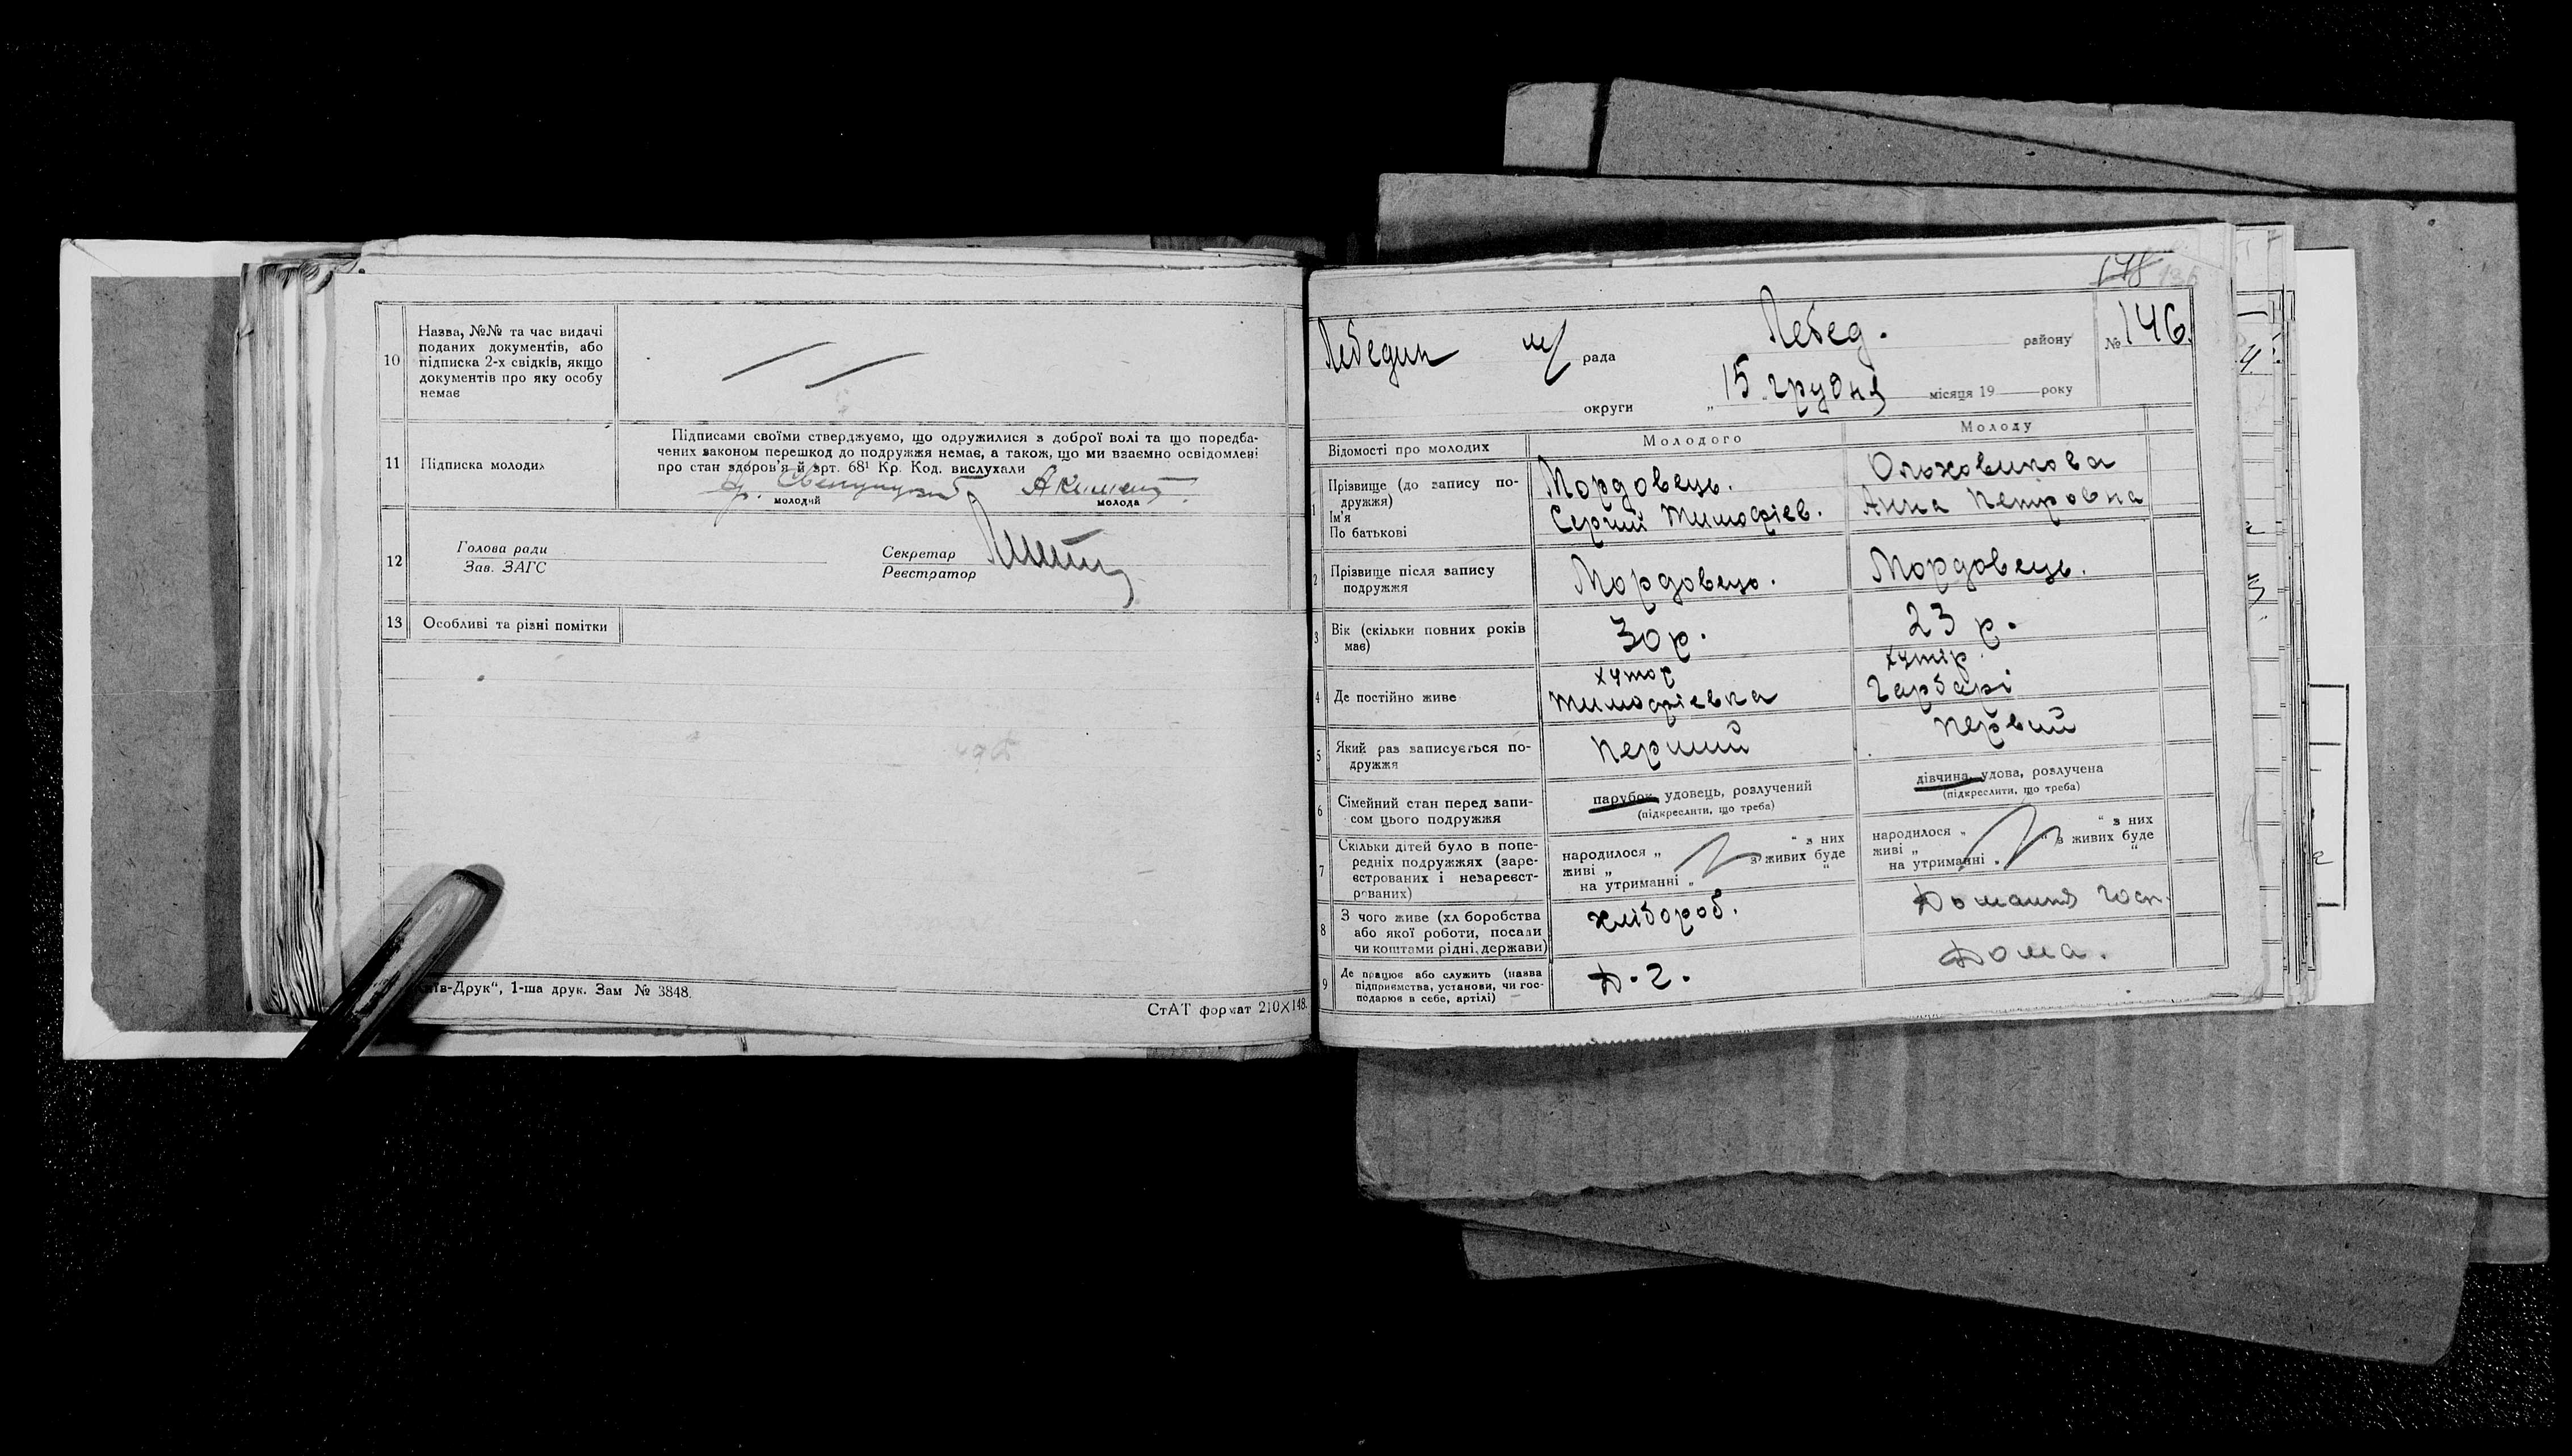 10
Назва, №№ та час видачі
поданих документів, або
підписка 2-х свідків, якщо
документів про яку особу
немає
11
Підписка молодих
Підписами своїми стверджуємо, що одружилися з доброї волі та що поредба-
чених законом перешкод до подружжя немає, а також, що ми взаємно освідомлені
про стан здоров'я й арт. 68¹ Кр. Код. вислухали
молодий
молода
12
Голова ради
Зав. ЗАГС
Секретар
Реєстратор
13
Особливі та різні помітки
-Друк", 1-ша друк. Зам № 3848.
СтАТ формат 210×148.
148
Лебедин м/ рада Лебед. району № 146.
округи „ 15 „ грудня місяця 19 року
Відомості про молодих
Молодого
Молоду
1
Прізвище (до запису по-
дружжя)
Ім'я
По батькові
Мордовець.
Сергий Тимофієв.
Ольховикова
Анна Петровна
2
Прізвище після запису
подружжя
Мордовець.
Мордовець.
3
Вік (скільки повних років
має)
30 р.
23 р.
4
Де постійно живе
хутор
Тимофієвка
хутір
Гарбарі
5
Який раз записується по-
дружжя
Перший
Первий
6
Сімейний стан перед запи-
сом цього подружжя
парубок, удовець, розлучений
(підкреслити, що треба)
дівчина, удова, розлучена
(підкреслити, що треба)
7
Скільки дітей було в попе-
редніх подружжях (заре-
єстрованих і незареєст-
рованих)
народилося „ “ з них
живі „ з живих буде
на утриманні „ “
народилося „ “ з них
живі „ “ з живих буде
на утриманні „ “
8
З чого живе (хл боробства
або якої роботи, посади
чи коштами рідні, держави)
хлібороб.
Домашня госп.
9
Де працює або служить (назва
підприємства, установи, чи гос-
подарює в себе, артілі)
Д. г.
Дома.